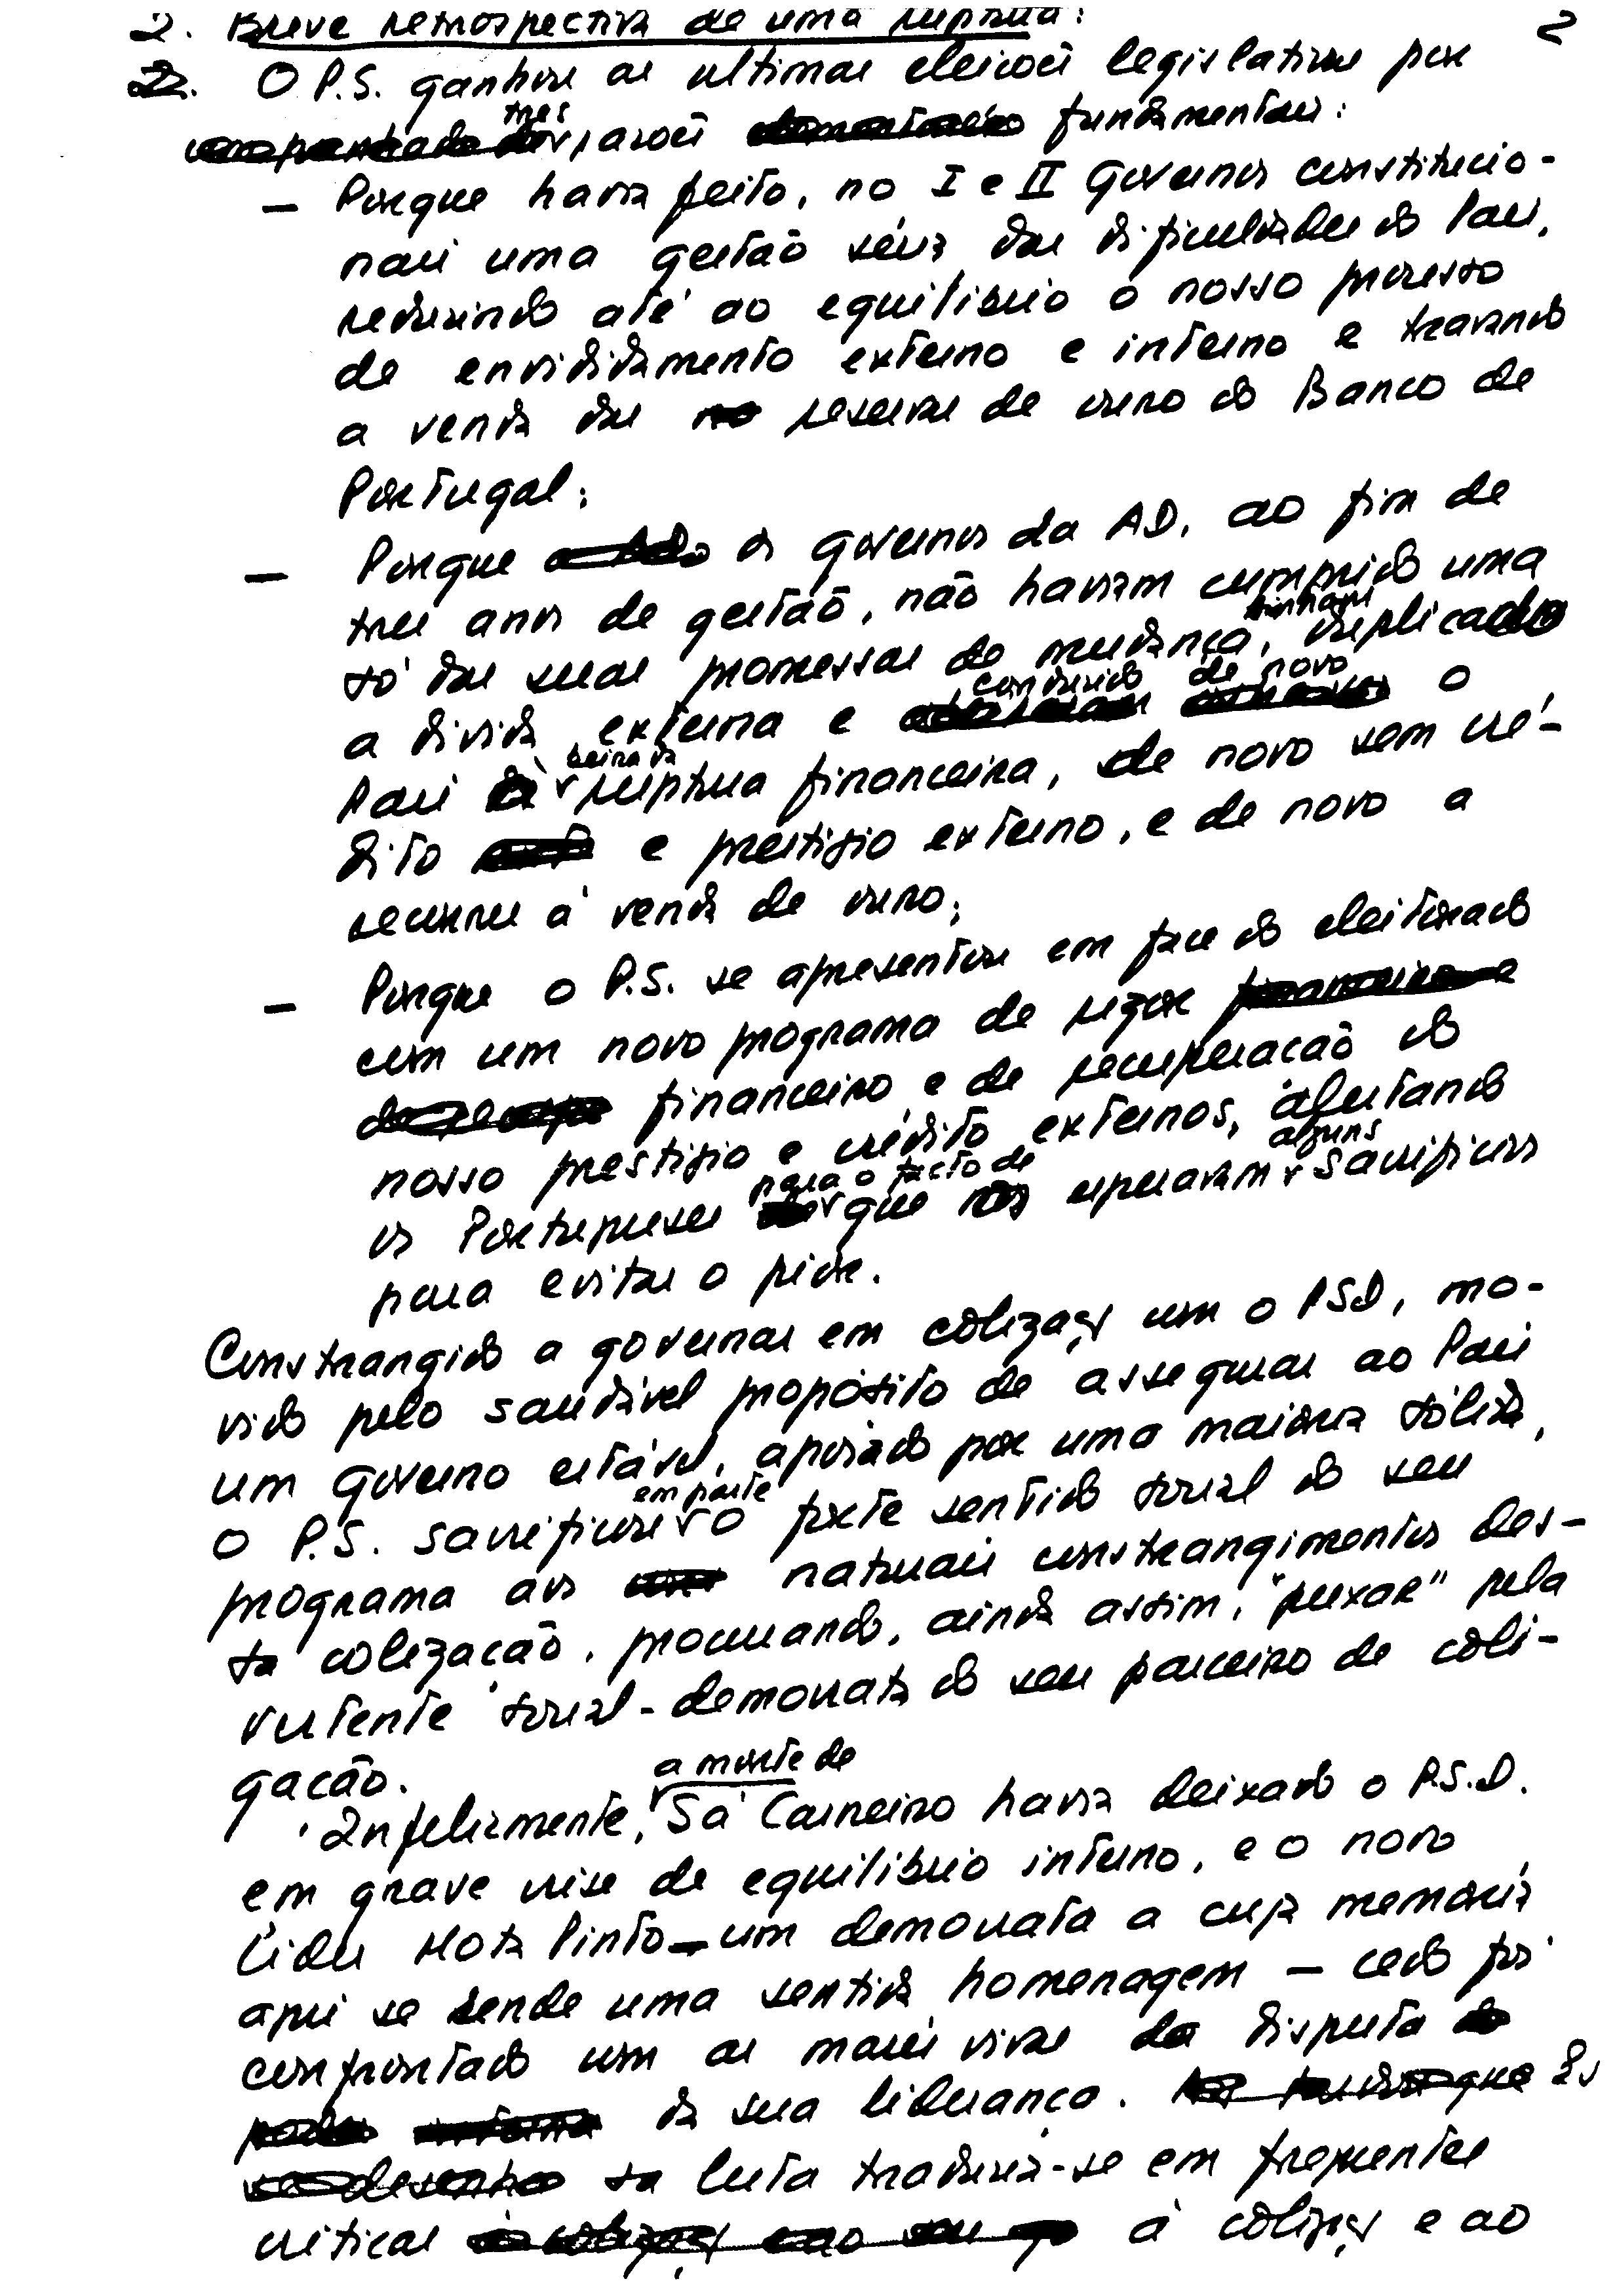 2. Breve retrospectiva de uma ruptura: 2
2. O P.S. ganhou as ultimas eleições legislativas por
três razões fundamentais:
— Porque havia feito, no I e II Governos constitucio-
nais uma gestão séria das dificuldades do País,
reduzindo até ao equilíbrio o nosso processo
de endividamento externo e interno e travando
a venda das reservas de ouro do Banco de
Portugal;
— Porque os governos da AD, ao fim de
três anos de gestão, não haviam cumprido uma
só das suas promessas de mudança, tinham duplicado
a dívida externa e conduzido de novo o
País à beira da ruptura financeira, de novo sem cré-
dito e prestígio externo, e de novo a
recorrer à venda de ouro;
— Porque o P.S. se apresentou em face do eleitorado
com um novo programa de rigor
financeiro e de recuperação do
nosso prestígio e crédito externos, alertando
os Portugueses para o facto de que os esperavam alguns sacrifícios
para evitar o pior.
Constrangido a governar em coligação com o PSD, mo-
vido pelo saudável propósito de assegurar ao País
um governo estável, apoiado por uma maioria sólida,
o P.S. sacrificou em parte o forte sentido social do seu
programa aos naturais constrangimentos des-
ta coligação, procurando, ainda assim, "puxar" pela
vertente social-democrata do seu parceiro de coli-
gação.
Infelizmente, a morte de Sá Carneiro havia deixado o P.S.D.
em grave crise de equilíbrio interno, e o novo
Líder Mota Pinto — um democrata a cuja memória
aqui se rende uma sentida homenagem — cedo foi
confrontado com as marés vivas da disputa
da sua liderança. Es
ta luta traduzia-se em frequentes
críticas à coligação e ao